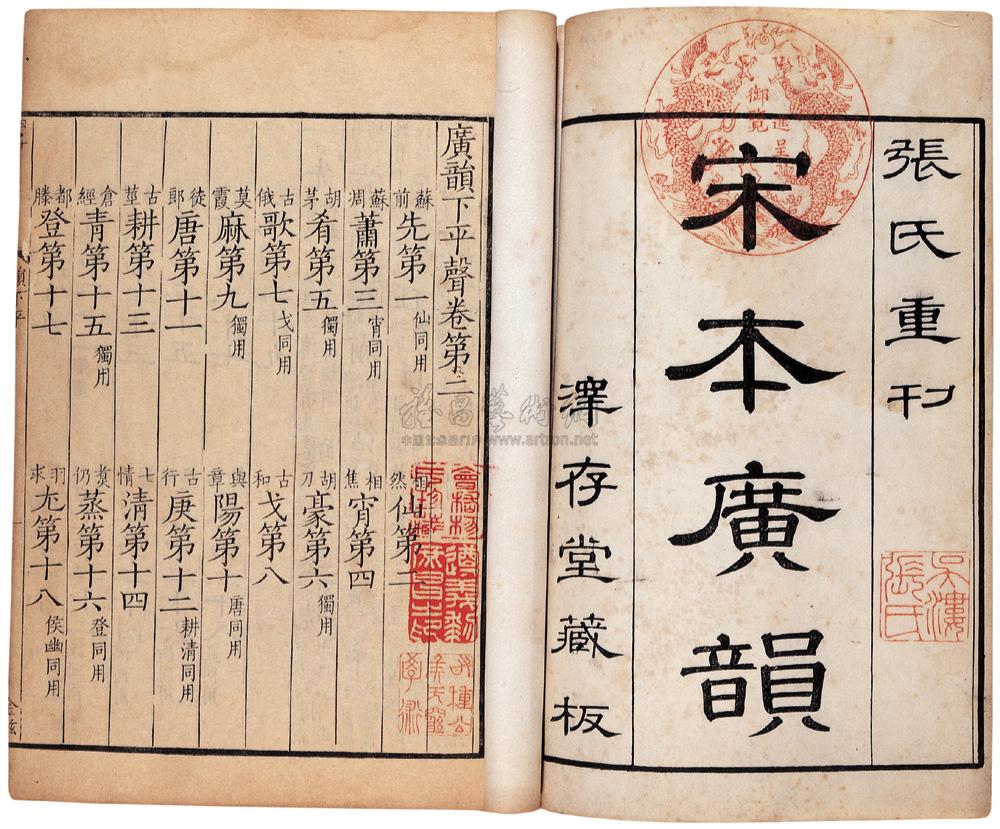 張氏重刊
御覽
進呈
宋本廣韻
澤存堂藏板
吳漊
張氏
廣韻下平聲卷第二
蘇前先第一仙同用
相然仙第二
蘇周蕭第三宵同用
相焦宵第四
胡茅肴第五獨用
胡刀豪第六獨用
古俄歌第七戈同用
古和戈第八
莫霞麻第九獨用
與章陽第十唐同用
徒郎唐第十一
古行庚第十二耕清同用
古莖耕第十三
七情清第十四
倉經青第十五獨用
煑仍蒸第十六登同用
都滕登第十七
羽求尤第十八侯幽同用
www.artron.net